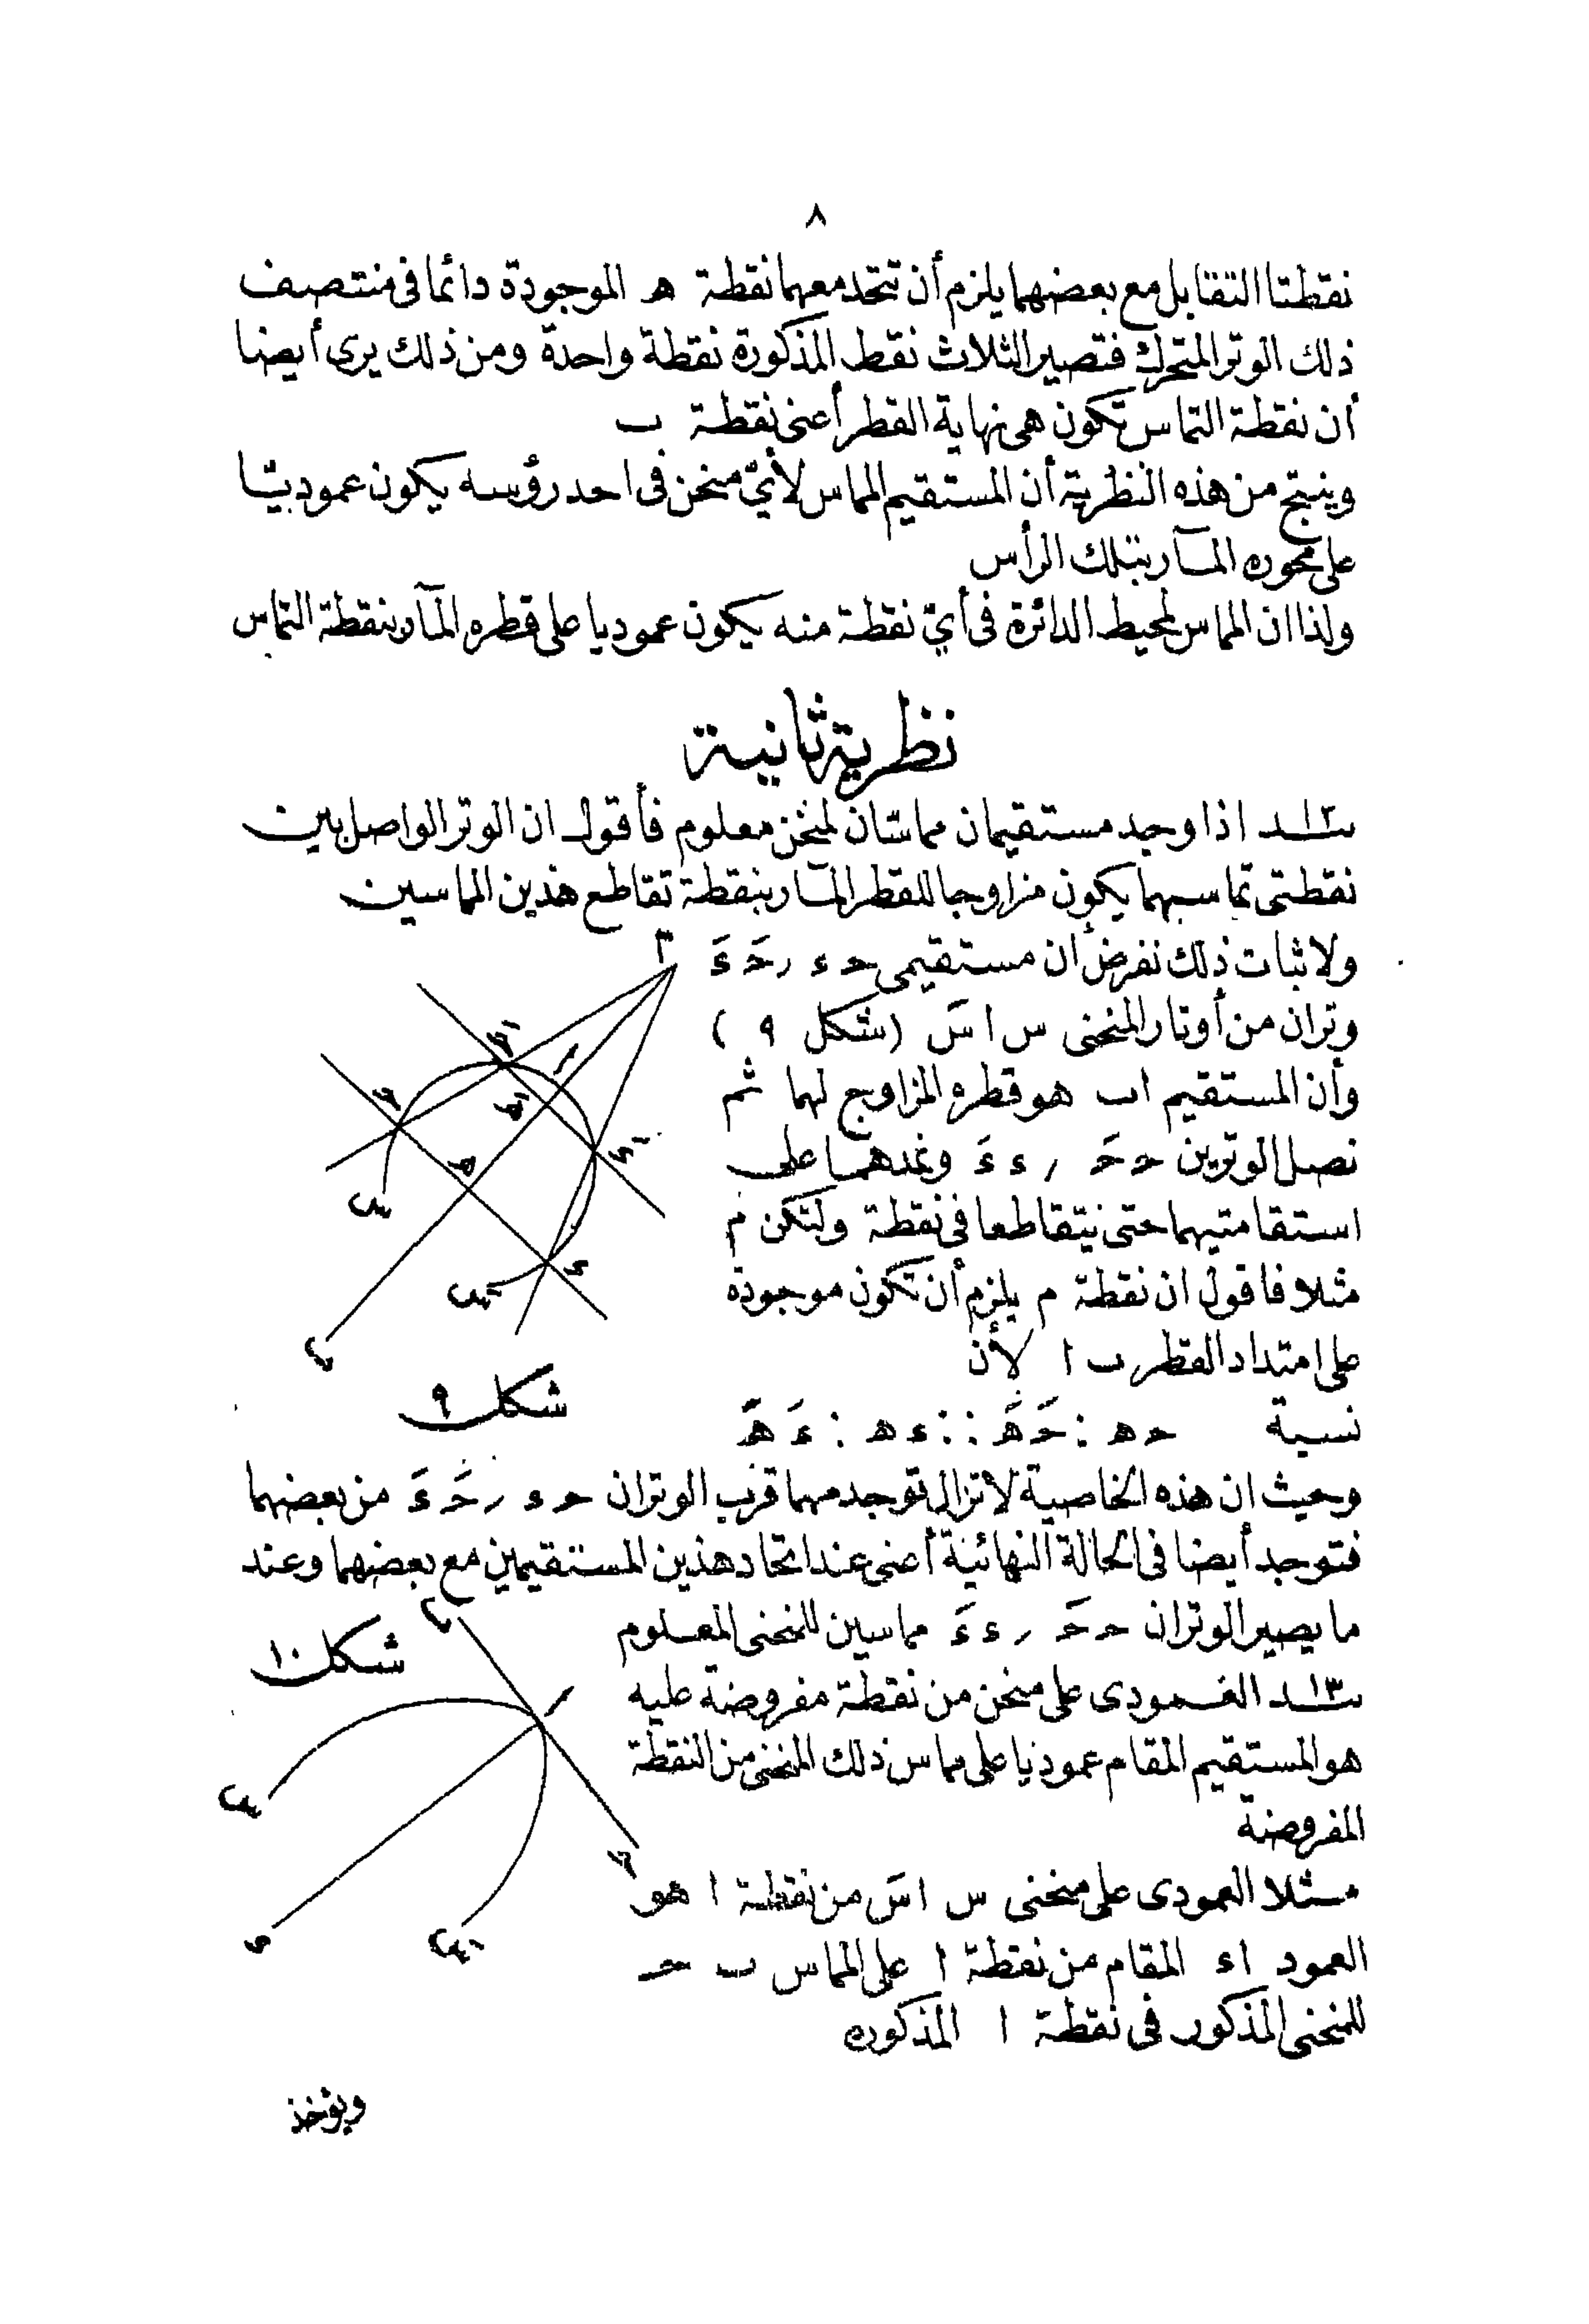 ٨
نقطتا التقابل مع بعضهما يلزم أن تتحد معهما نقطة ه الموجودة دائما فى منتصف
ذلك الوتر المتحرك فتصير الثلاث نقط المذكورة نقطة واحدة ومن ذلك يرى أيضا
أن نقطة التماس تكون هى نهاية القطر أعنى نقطة ب
وينتج من هذه النظرية أن المستقيم المماس لأىّ منحن فى احد رؤسه يكون عموديّا
على محوره المـآر بتلك الرأس
ولذا ان المماس لمحيط الدائرة فى أىّ نقطة منه يكون عموديا على قطره المـآر بنقطة التماس
نظرية ثانية
١٢ـد اذا وجد مستقيمان مماسّان لمنحن معلوم فأقول ان الوتر الواصل بين
نقطتى تماسهما يكون مزاوجا للقطر المـآر بنقطة تقاطع هذين المماسين
ولاثبات ذلك نفرض أن مستقيمى حء , حَ ءَ
وتران من أوتار المنحنى س ا سَ (شكل ٩ )
وأن المستقيم اب هو قطره المزاوج لهما ثم
نصل الوترين ح حَ , ء ءَ ونمدهما على
استقامتيهما حتى يتقاطعا فى نقطة ولتكن م
مثلا فاقول ان نقطة م يلزم أن تكون موجودة
على امتداد القطر ب ا لأن
نسبة حه : حَ هَ :: ءه : ءَ هَ
وحيث ان هذه الخاصية لاتزال توجد مهما قرب الوتران حء , حَ ءَ من بعضهما
فتوجد أيضا فى الحالة النهائية أعنى عند اتحاد هذين المستقيمين مع بعضهما وعند
ما يصير الوتران ح حَ , ء ءَ مماسين للمنحنى المعلوم
١٣ـد العمودى على منحن من نقطة مفروضة عليه
هو المستقيم المقام عموديا على مماس ذلك المنحنى من النقطة
المفروضة
مثلا العمودى على منحنى س ا سَ من نقطة ا هو
العمود اء المقام من نقطة ا على المماس ب ح
للمنحنى المذكور فى نقطة ا المذكوره
ويؤخذ
م
حَ
ا
ح
هَ
ءَ
ه
س
ء
سَ
ب
شكل ٩
ب
شكل ١٠
ا
س
ح
ء
سَ